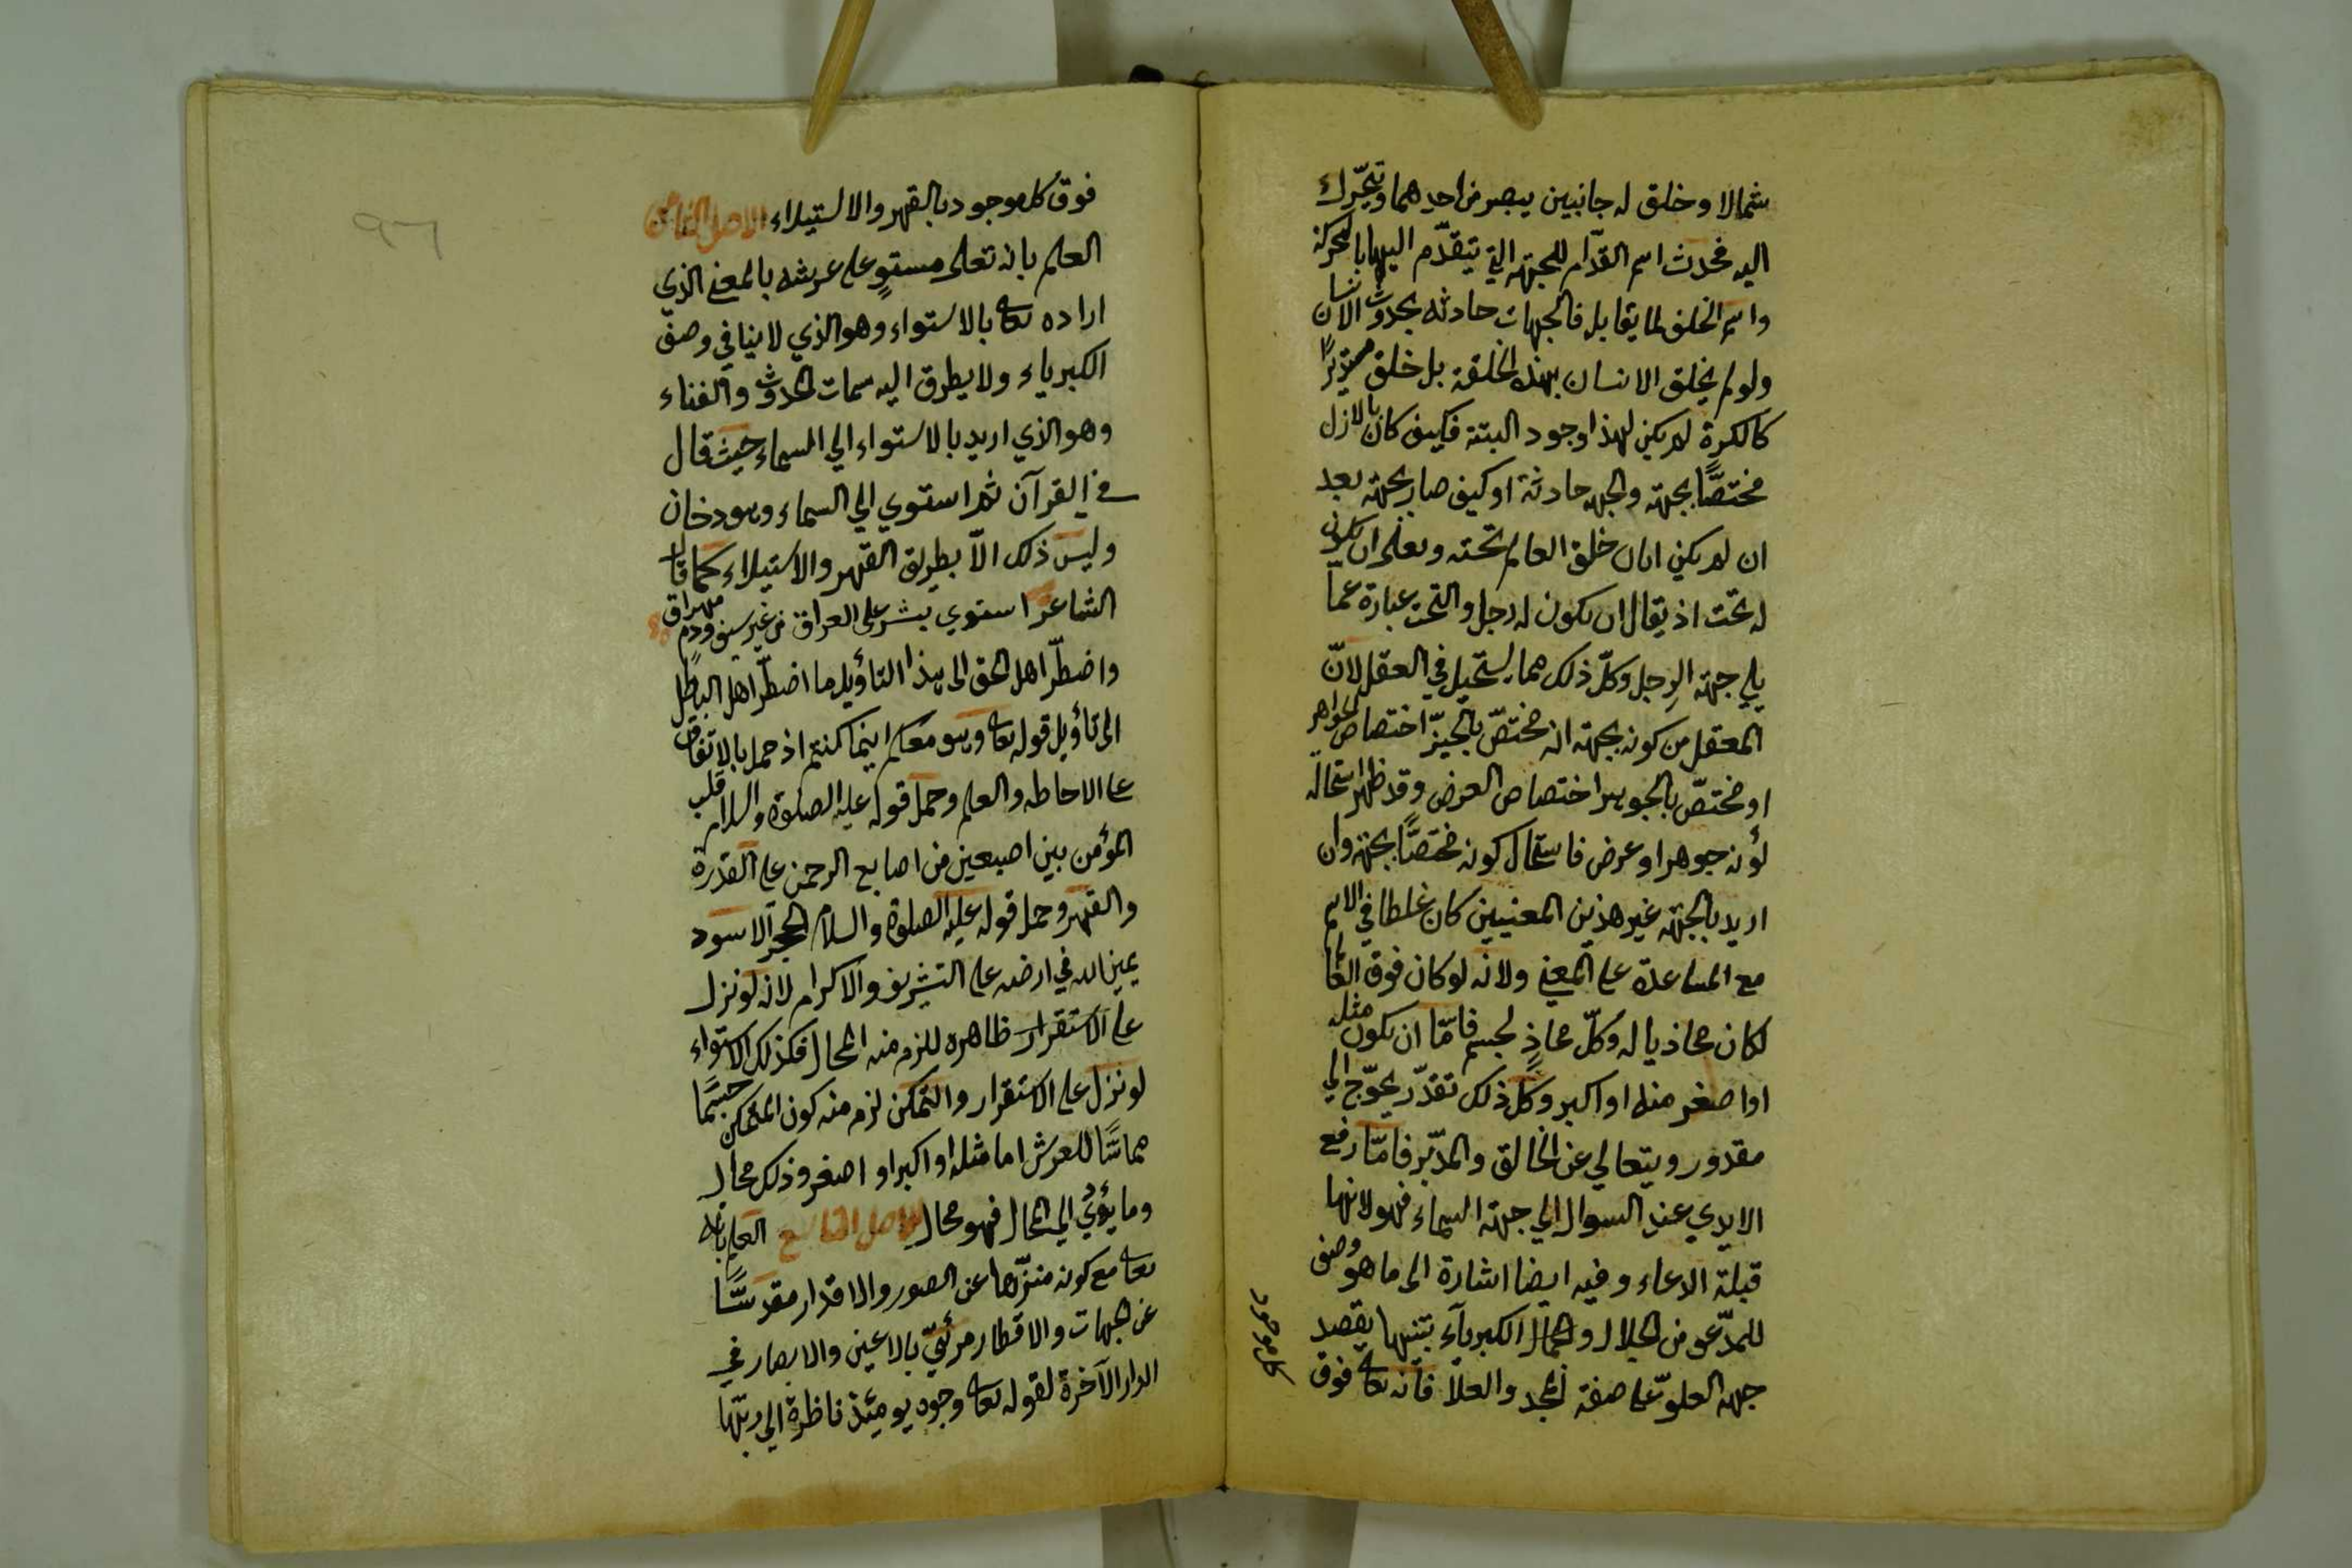 شمالا وخلق له جانبين يبصر من احدهما ويتحرك
اليه فحدث اسم القدّام للجهة التي يتقدّم اليها بالحركة
واسم الخلف لما يقابله فالجهات حادثة بحدوث الانسان
ولو لم يخلق الانسان بهذه الخلقة بل خلق مستديرًا
كالكرة لم يكن لهذا وجود البتة فكيف كان بالازل
مختصًّا بجهة والجهة حادثة او كيف صار بجهة بعد
ان لم يكن ابان خلق العالم تحته وتعلى ان يكون
له تحت اذ يقال ان يكون له رجل والتحت عبارة عما
يلي جهة الرجل وكلّ ذلك مما يستحيل في العقل لانّ
المعقل من كونه بجهة انه مختصّ بالحيّز اختصاص الجواهر
او مختصّ بالجوهر اختصاص العرض وقد ظهر استحالة
لؤنه جوهرا او عرض فاستحال كونه مختصًّا بجهة وان
اريد بالجهة غير هذين المعنيين كان غلطا في الاسم
مع المساعدة على المعنى ولانه لو كان فوق العالم
لكان محاذيا له وكلّ محاذٍ لجسم فامّا ان يكون مثله
او اصغر منه او اكبر وكل ذلك تقدّر يحوّج الي
مقدور ويتعالي عن الخالق والمدّبر فامّا رفع
الايدي عند السوال الي جهة السماء فهو لانها
قبلة الدعاء وفيه ايضا اشارة الى ما هو وصف
للمدّعو من الجلال والجمال الكبرياء بتنيها بقصد
جهة العلوّ على صفة المجد والعلا فانه تعالى فوق
كل موجود
فوق كل موجود بالقهر والاستيلاء الاصل الثامن
العلم بانه تعلى مستوٍ على عرشه بالمعنى الذي
اراده تعالى بالاستواء وهو الذي لا ينافي وصف
الكبرياء ولا يطرق اليه سمات الحدوث والفناء
وهو الذي اريد بالاستواء الي السماء حيث قال
في القرآن ثم استوي الي السماء وهو دخان
وليس ذلك الاّ بطريق القهر والاستيلاء كما قال
الشاعر استوي بشر على العراق من غير سيف ودم مهراق
واضطّر اهل الحق الى هذا التأويل ما اضطّر اهل الباطل
الى تأويل قوله تعالى وهو معكم اينما كنتم اذ حمل بالاتفاق
على الاحاطه والعلم وحمل قوله عليه الصلوة والسلام قلب
المؤمن بين اصبعين من اصابع الرحمن على القدرة
والقهر وحمل قوله عليه الصلوة والسلام الحجر الاسود
يمين الله في ارضه على التشريف والاكرام لانه لو نزل
على الاستقرار ظاهره للزم منه المحال فكذلك الاستواء
لو نزل على الاستقرار والتمكن لزم منه كون المتمكن جسمًا
مماسًّا للعرش اما مثله او اكبر او اصغر وذلك محال
وما يؤدّي الي المحال فهو محال الاصل التاسع العلم بانه
تعالى مع كونه منزّها عن الصور والاقدار مقدسًّا
عن الجهات والاقطار مرئيّ بالاعين والابصار في
الدار الآخرة لقوله تعالى وجوه يومئذ ناظرة الي ربّها
٩٦